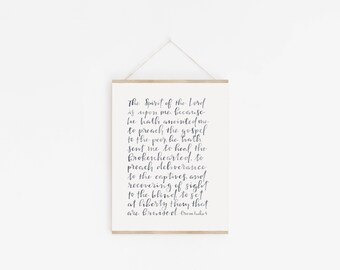 The Spirit of the Lord
is upon me because
he hath anointed me
to preach the gospel
to the poor he hath
sent me to heal the
brokenhearted to
preach deliverance
to the captives and
recovering of sight
to the blind to set
at liberty them that
are bruised.